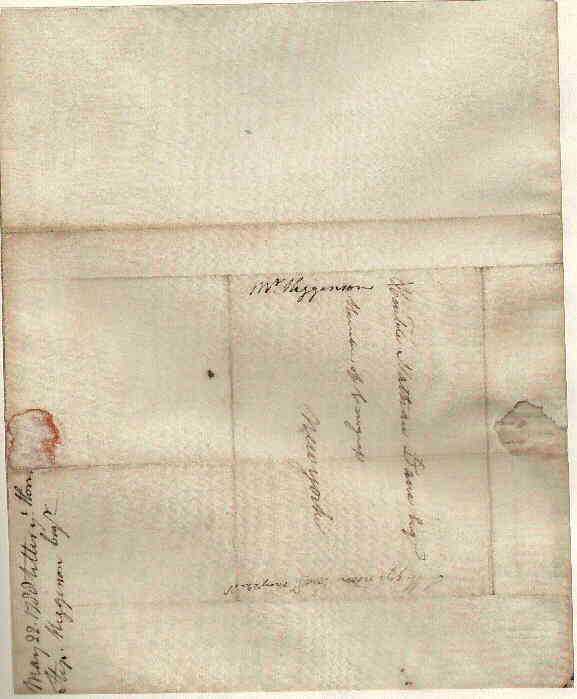 Mr. Higgenson
Honble Nathan Dane Esq
Member of Congress
New york
May 22. 1788 letter
Step. Higgenson Esqr